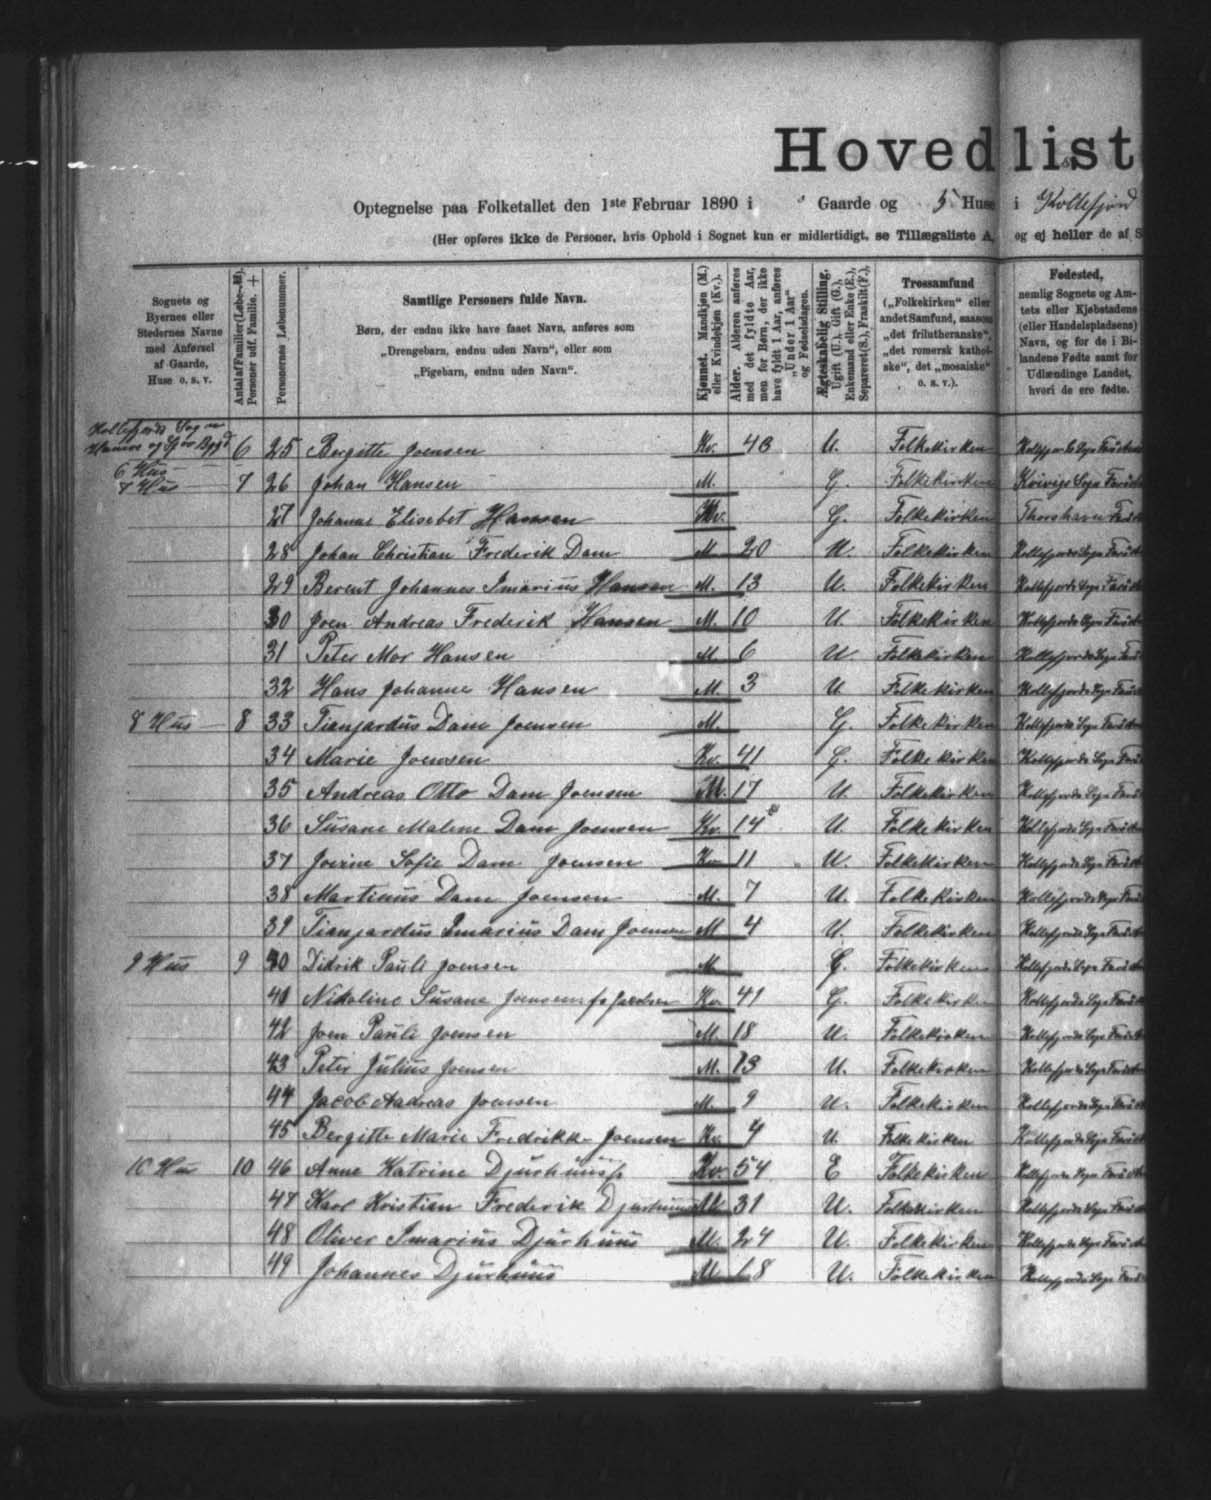 Hovedlist
Optegnelse paa Folketallet den 1ste Februar 1890 i Gaarde og 5 Huse i Kollefjord
(Her opføres ikke de Personer, hvis Ophold i Sognet kun er midlertidigt, se Tillægsliste A, og ej heller de af S
Sognets og Byernes eller Stedernes Navne med Anførsel af Gaarde, Huse o. s. v.
Antal af Familier (Løbe-№). Personer udf. Familie. +
Personernes Løbenummer.
Samtlige Personers fulde Navn.
Børn, der endnu ikke have faaet Navn, anføres som
„Drengebarn, endnu uden Navn", eller som
„Pigebarn, endnu uden Navn".
Kjønnet. Mandkjøn (M.) eller Kvindekjøn (Kv.).
Alder. Alderen anføres med det fyldte Aar, men for Børn, der ikke have fyldt 1 Aar, anføres „Under 1 Aar" og Fødselsdagen.
Ægteskabelig Stilling. Ugift (U.), Gift (G.), Enkemand eller Enke (E.), Separeret (S.), Fraskilt (F.),
Trossamfund
(„Folkekirken" eller andet Samfund, saasom „det frilutheranske", „det romersk katholske", det „mosaiske" o. s. v.).
Fødested,
nemlig Sognets og Amtets eller Kjøbstadens (eller Handelspladsens) Navn, og for de i Bilandene Fødte samt for Udlændinge Landet, hvori de ere fødte.
Kollefjords Sogn
6 Hus 6 25 Bergitte Joensen Kv. 43 U. Folkekirken Kollefjords Sogn
7 Hus 7 26 Johan Hansen M. G. Folkekirken Kvivigs Sogn
27 Johanne Elisebet Hansen Kv. G. Folkekirken Thorshavn
28 Johan Christian Frederik Dam M 20 U. Folkekirken Kollefjords Sogn
29 Berent Johannes Imarius Hansen M. 13 U. Folkekirken Kollefjords Sogn
30 Joen Andreas Frederik Hansen M. 10 U. Folkekirken Kollefjords Sogn
31 Peter Mor Hansen M. 6 U. Folkekirken Kollefjords Sogn
32 Hans Johanne Hansen M. 3 U. Folkekirken Kollefjords Sogn
8 Hus 8 33 Tianjardus Dam Joensen M. G. Folkekirken Kollefjords Sogn
34 Marie Joensen Kv. 41 G. Folkekirken Kollefjords Sogn
35 Andreas Otto Dam Joensen M. 17 U. Folkekirken Kollefjords Sogn
36 Susane Malene Dam Joensen Kv. 14 U. Folkekirken Kollefjords Sogn
37 Sofie Dam Joensen Kv 11 U. Folkekirken Kollefjords Sogn
38 Martinus Dam Joensen M. 7 U. Folkekirken Kollefjords Sogn
39 Tianjardus Imarius Dam Joensen M 4 U. Folkekirken Kollefjords Sogn
9 Hus 9 40 Didrik Pauli Joensen M G. Folkekirken Kollefjords Sogn
41 Nikoline Susane Joensen Kv. 41 G. Folkekirken Kollefjords Sogn
42 Joen Pauli Joensen M. 18 U. Folkekirken Kollefjords Sogn
43 Peter Julius Joensen M. 13 U. Folkekirken Kollefjords Sogn
44 Jacob Andreas Joensen M. 9 U. Folkekirken Kollefjords Sogn
45 Bergitte Marie Fredrikke Joensen Kv. 4 U. Folkekirken Kollefjords Sogn
10 Hus 10 46 Anne Katrine Djurhuus Kv. 54 E Folkekirken Kollefjords Sogn
47 Karl Kristian Frederik Djurhuus M. 31 U. Folkekirken Kollefjords Sogn
48 Oliver Imarius Djurhuus M. 24 U. Folkekirken Kollefjords Sogn
49 Johannes Djurhuus M. 18 U. Folkekirken Kollefjords Sogn